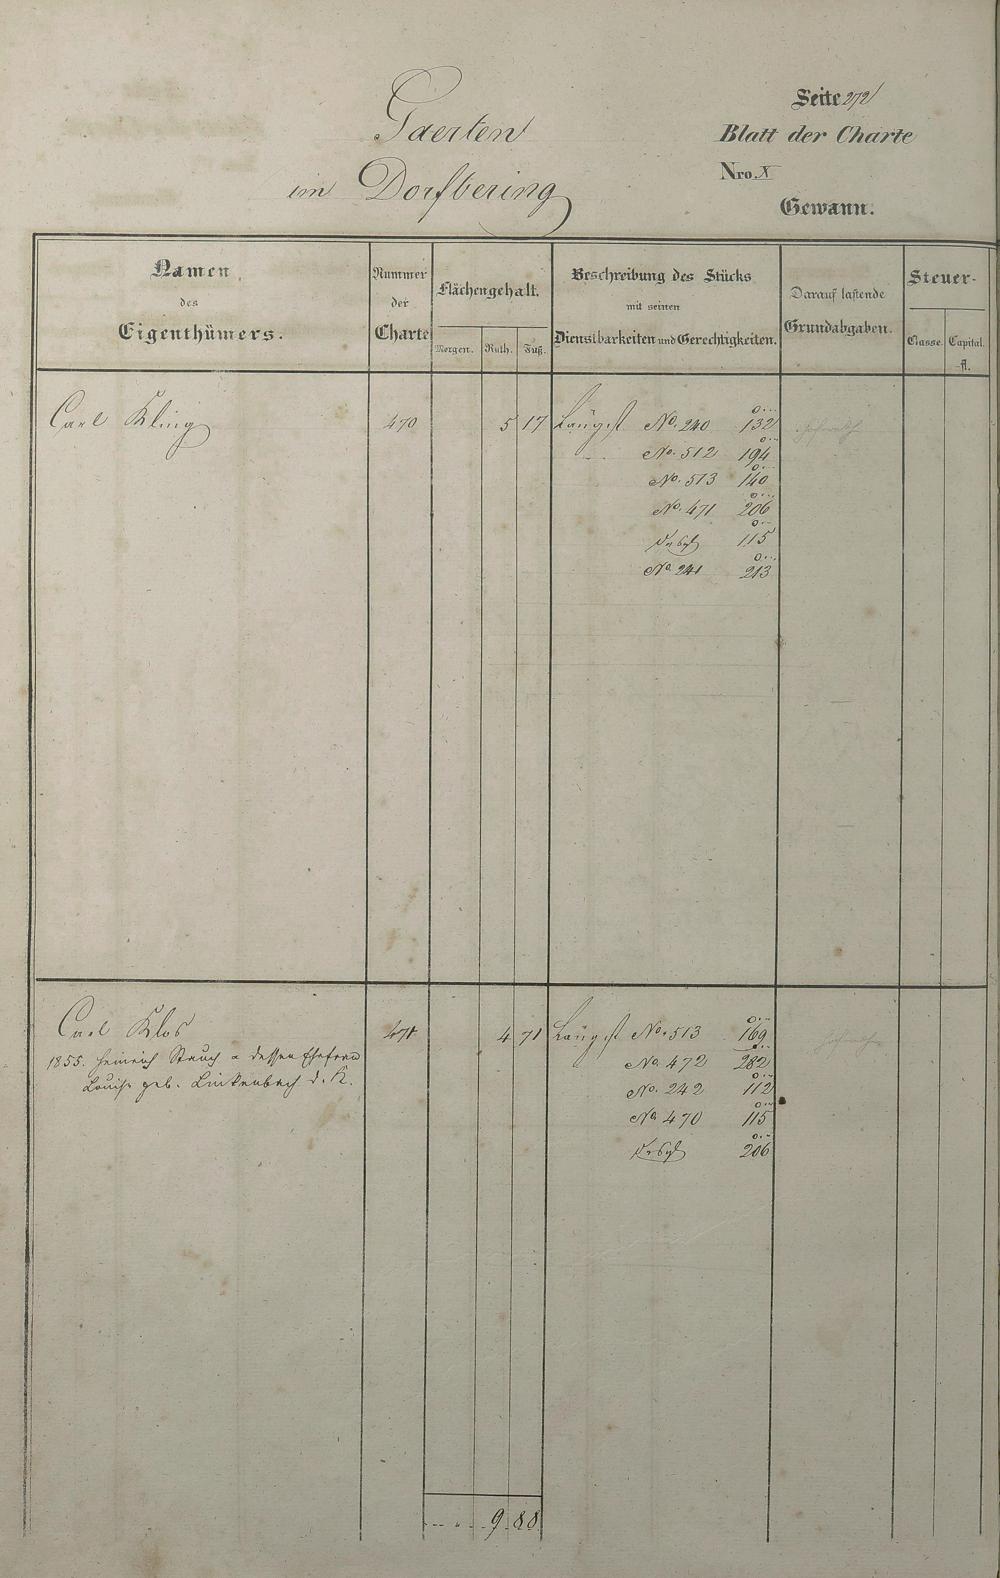 Gaerten
im Dorfbering
Seite 272
Blatt der Charte
Nro. X
Gewann.
Namen
des
Eigenthümers.
Nummer
der
Charte
Flächengehalt.
Morgen. Ruth. Fuß.
Beschreibung des Stücks
mit seinen
Dienstbarkeiten und Gerechtigkeiten.
Darauf lastende
Grundabgaben.
Steuer-
Classe. Capital.
fl.
Carl Kling 470 5 17 Längst No. 240 132
No. 512 194
No. 513 140
No. 471 206
115
No 241 213
Carl Klos 471 4 71 Längst No. 513 169
1855. Heinrich Stauch u dessen Ehefrau No. 472 282
Louise geb. Linkenbach d. K. No. 242 112
No 470 115
206
9 88